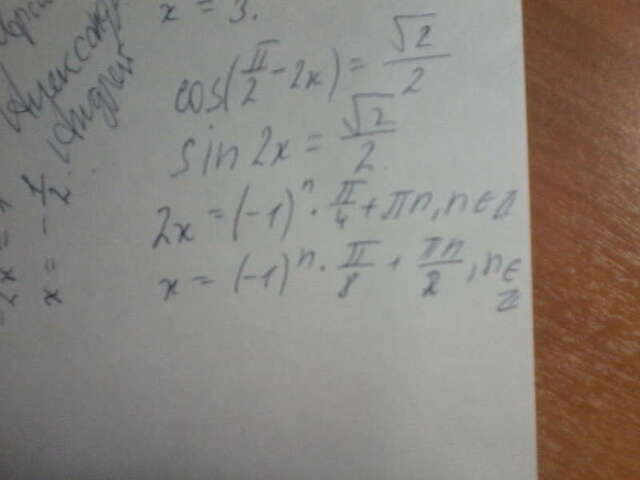 x = 3.
cos(π/2 - 2x) = √2/2
sin 2x = √2/2
2x = (-1)ⁿ · π/4 + πn, n ∈ Z
x = (-1)ⁿ · π/8 + πn/2, n ∈
Z
Александр
Андрей
x = -1/2.